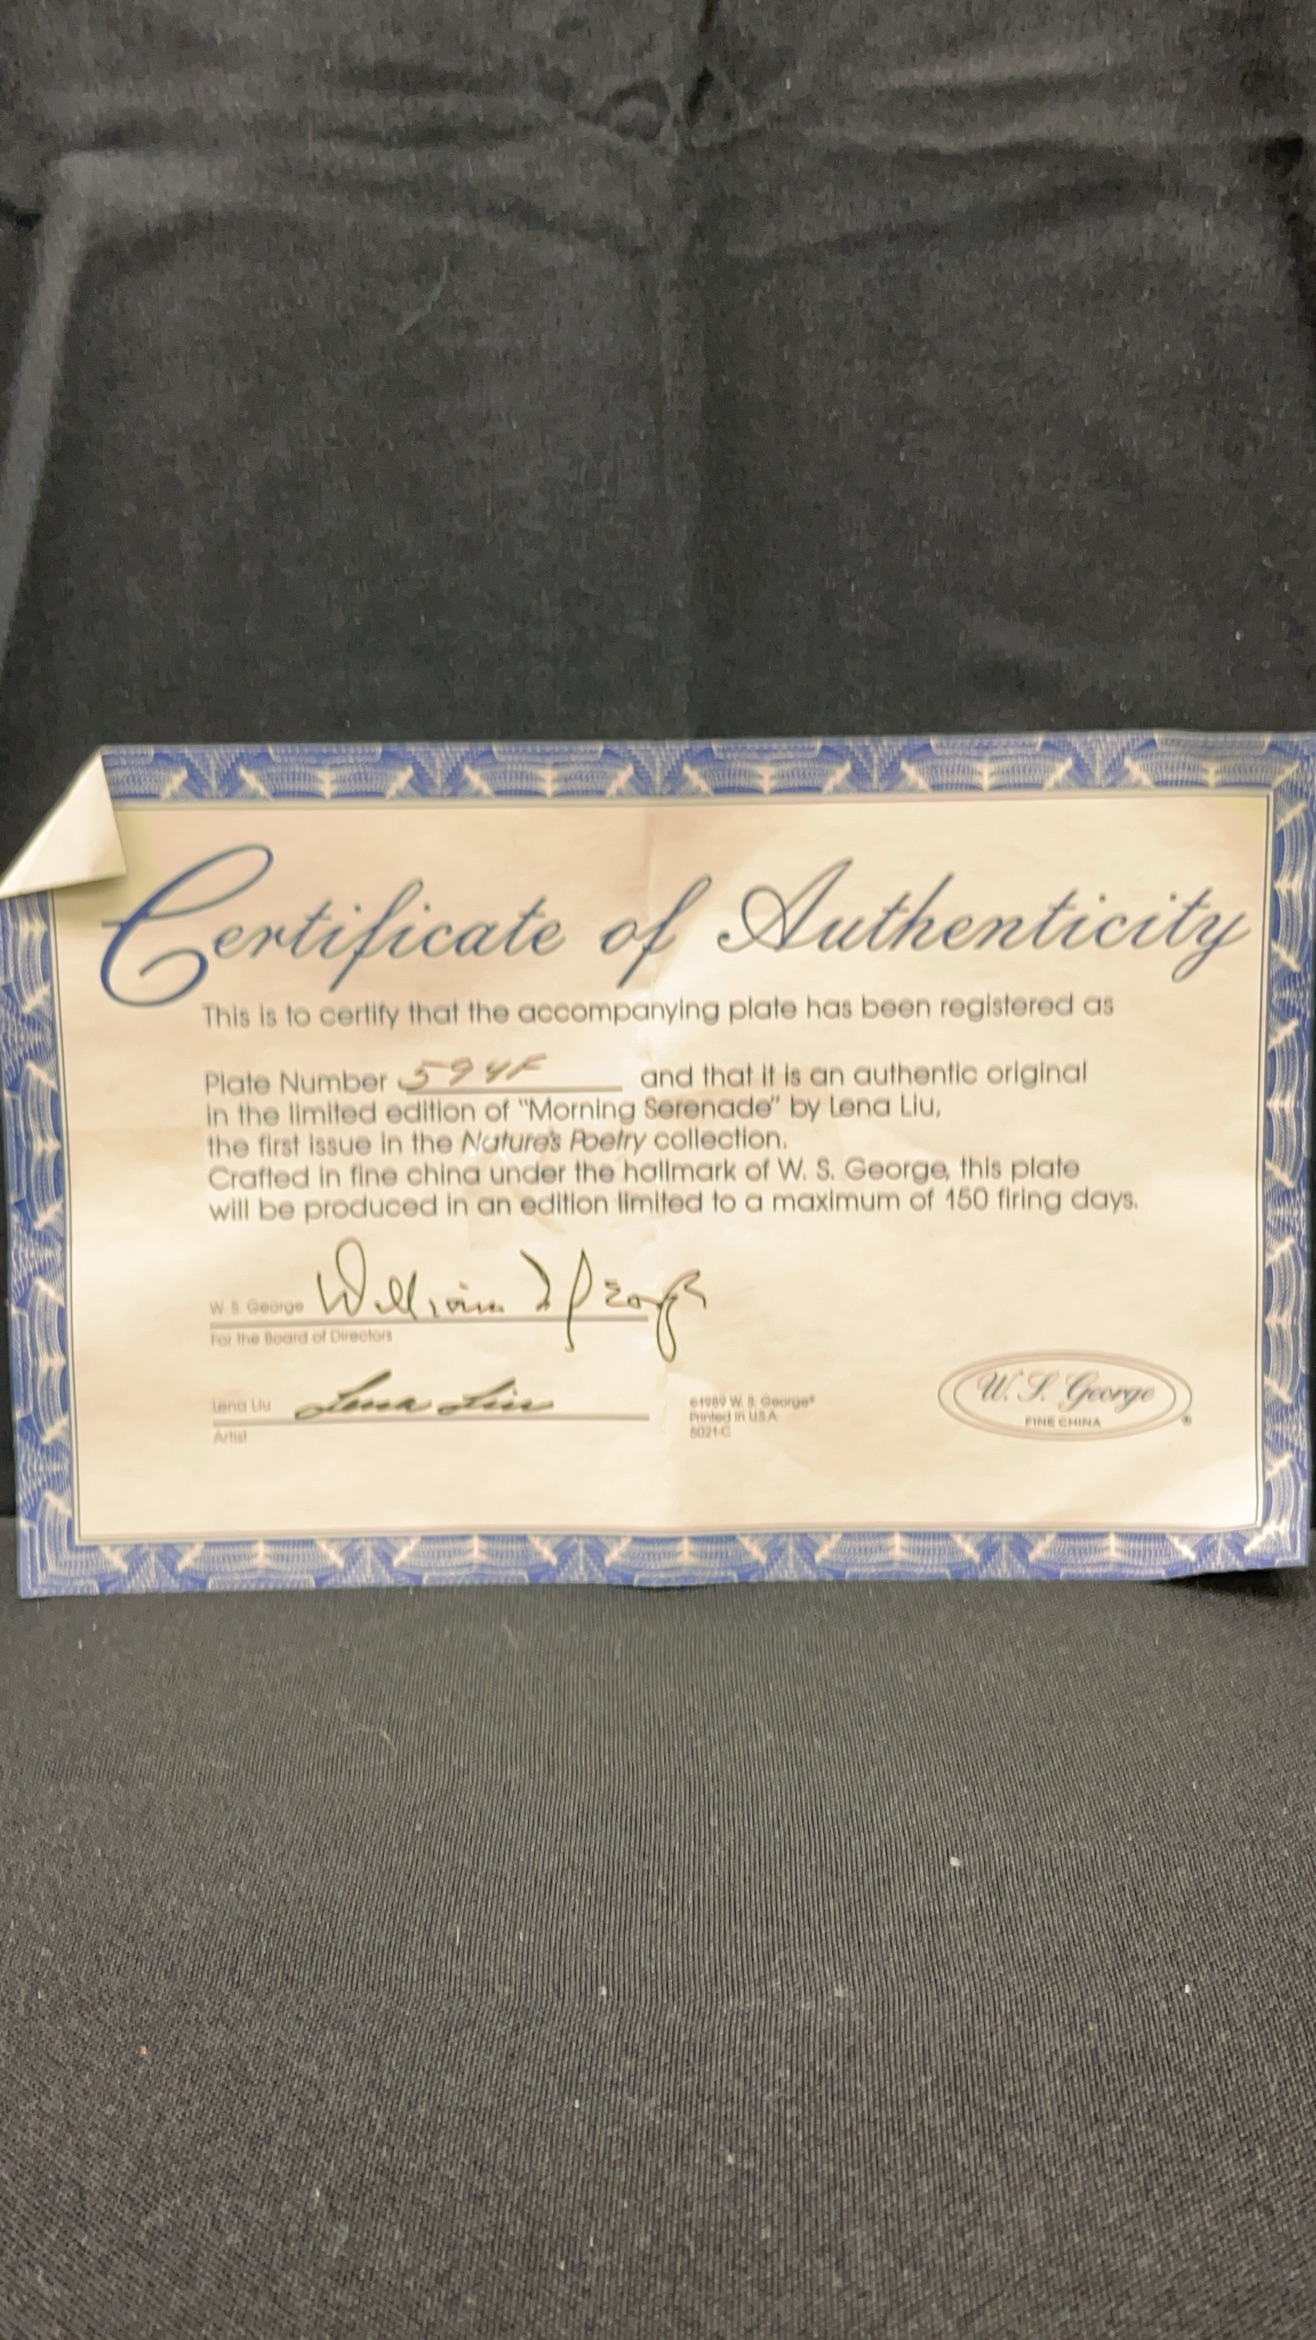 Certificate of Authenticity
This is to certify that the accompanying plate has been registered as
Plate Number 594F and that it is an authentic original
in the limited edition of "Morning Serenade" by Lena Liu,
the first issue in the Nature's Poetry collection.
Crafted in fine china under the hallmark of W. S. George, this plate
will be produced in an edition limited to a maximum of 150 firing days.
W. S. George William J George
For the Board of Directors
Lena Liu Lena Liu
Artist
©1989 W. S. George®
Printed in U.S.A.
5021-C
W. S. George
FINE CHINA
®